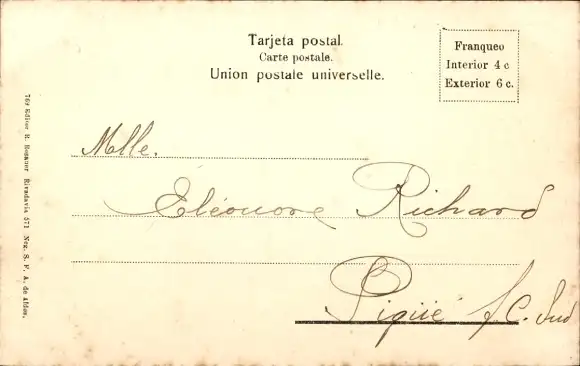 Tarjeta postal.
Carte postale.
Union postale universelle.
Franqueo
Interior 4 c
Exterior 6 c.
Mlle.
Eléonore Richard
Pigüé F.C. Sud
769 Editor R. Rosauer Rivadavia 571 Neg. S. F. A. de Afdos.